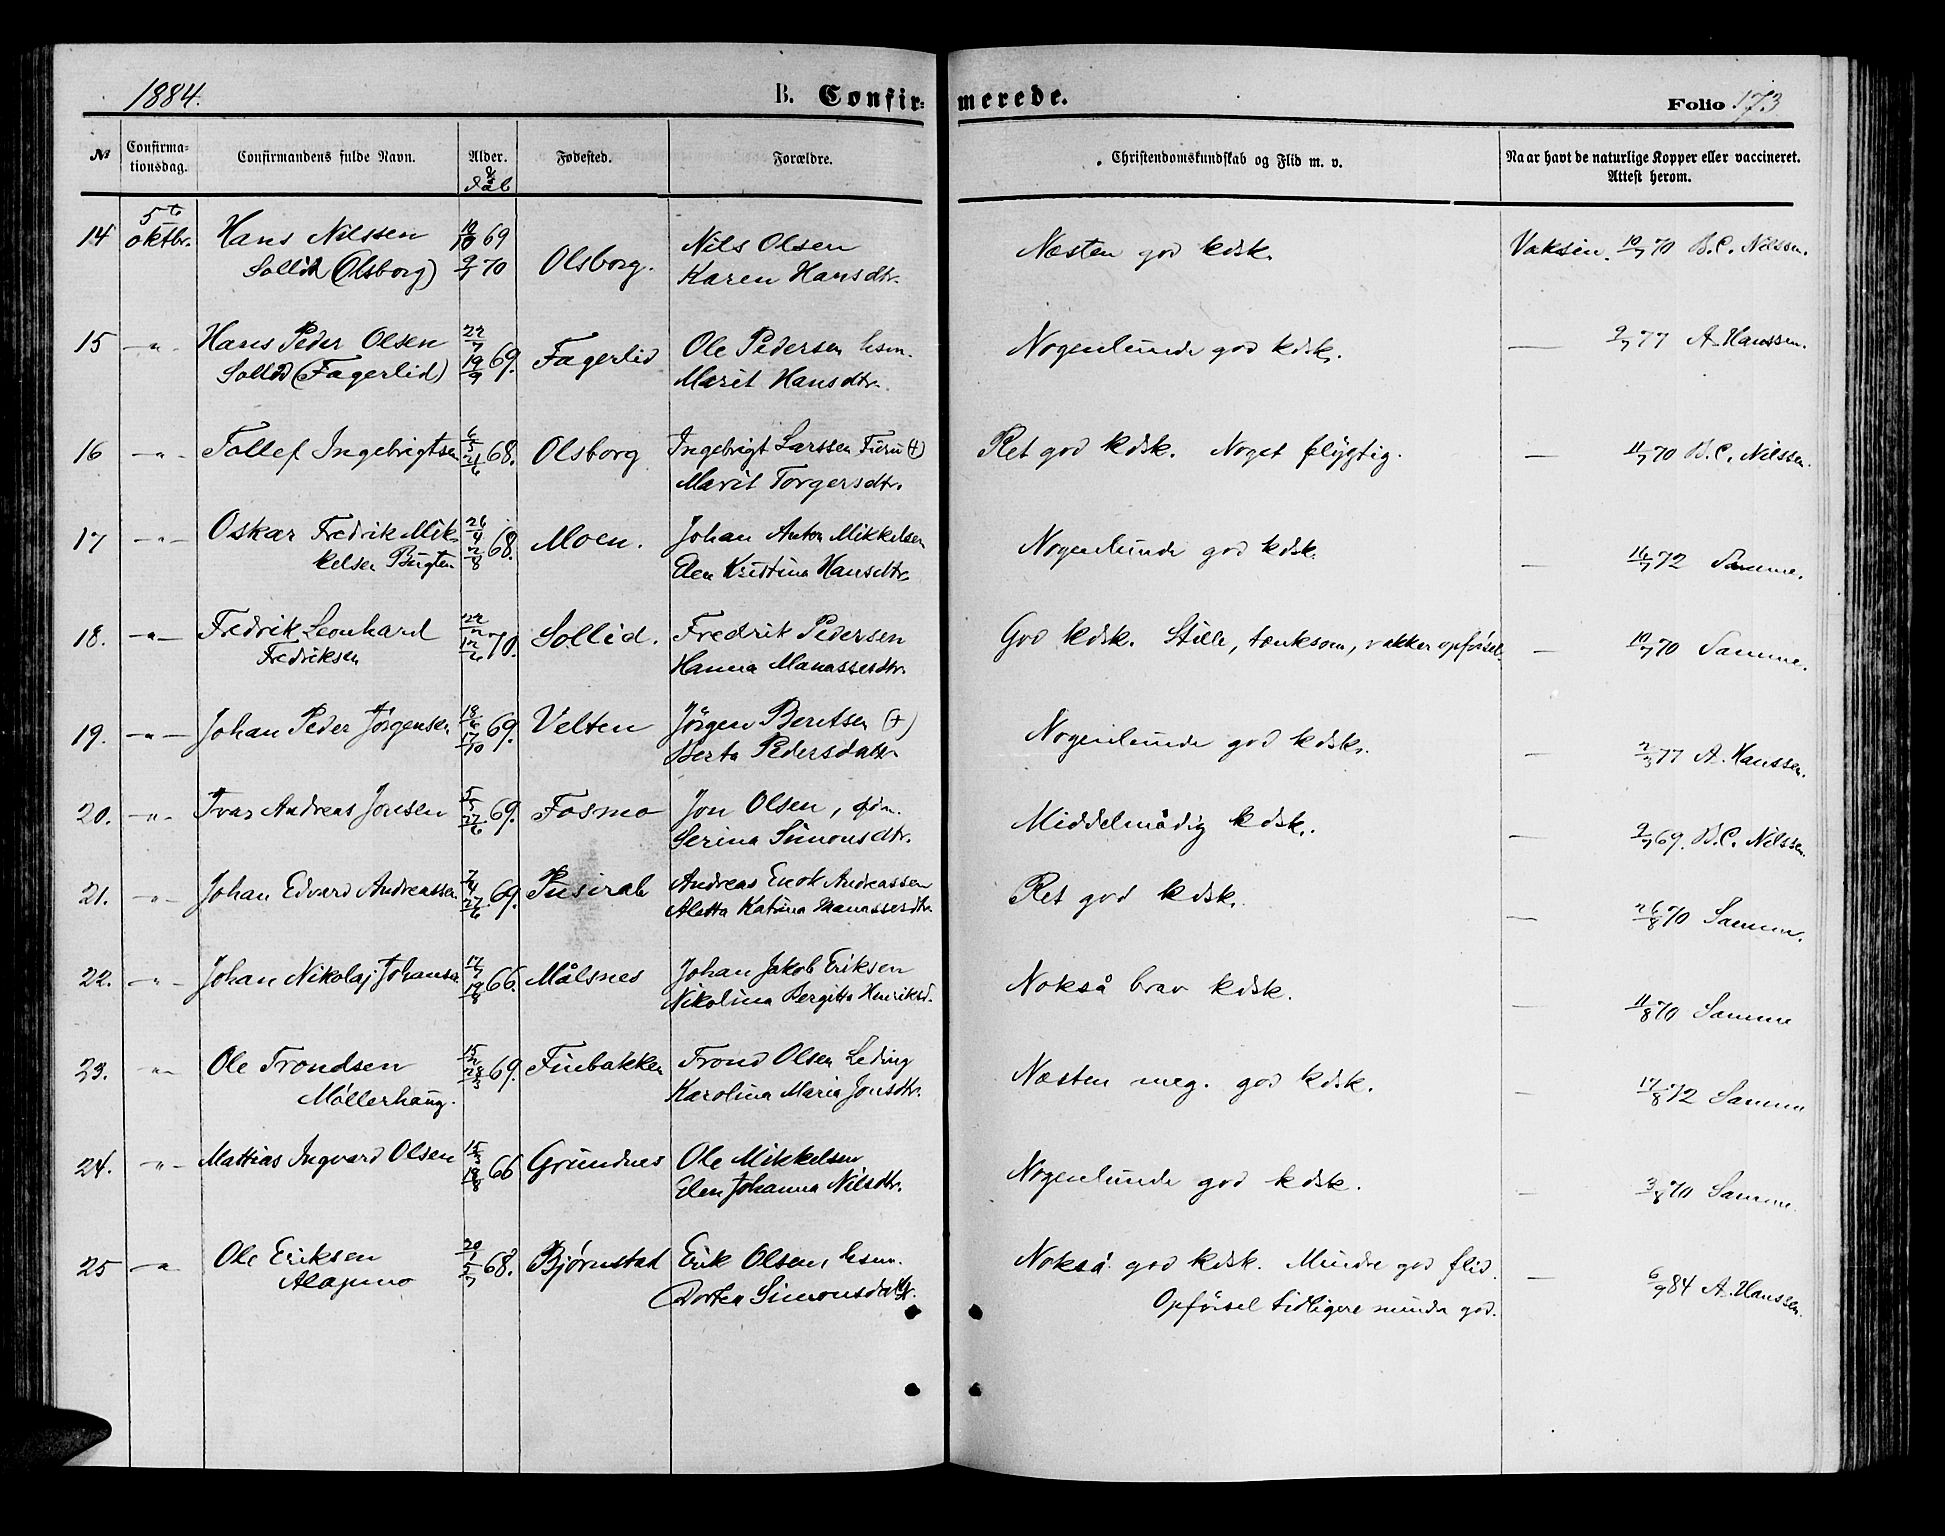 1884. B. Confir- merede. Folio 173
№ Confirma-tionsdag. Confirmandens fulde Navn. Alder. & dåb Fødested. Forældre. Christendomskundskab og Flid m. v. Naar havt de naturlige Kopper eller vaccineret. Attest herom.
14 5te oktbr. Hans Nilssen 69 Olsborg. Nils Olsen Næsten god kdsk. Vaksin. 10/7 70 B.C. Nilssen.
Sollid (Olsborg) 70 Karen Hansdtr.
15 -"- Hans Peder Olsen 22/7 19/9 69. Fagerlid Ole Pedersen hsm. Nogenlunde god kdsk. — 2/7 77 A. Hanssen.
Sollid (Fagerlid) Marit Hansdtr.
16 -"- Tollef Ingebrigtsen 68. Olsborg Ingebrigt Larssen Furu (+) Ret god kdsk. Noget flygtig. — 11/7 70 B.C. Nilssen.
Marit Torgersdtr.
17 -"- Oskar Fredrik Mik- 26/4 2/8 68. Moen. Johan Anton Mikkelsen Nogenlunde god kdsk. — 16/7 72 Samme.
kelsen Bugten Elen Kristina Hansdtr.
18. -"- Fredrik Leonhard 22/2 12/6 70. Sollid. Fredrik Pedersen God kdsk. Stille, tænksom, vakker opførsel. — 10/7 70 Samme.
Fredriksen Hanna Manassesdtr.
19. -"- Johan Peder Jørgensen 18/6 17/10 69. Velten Jørgen Berntsen (+) Nogenlunde god kdsk. — 77 A. Hanssen.
Berta Pedersdatr.
20. -"- Ivar Andreas Jonsen 5/5 27/6 69. Fosmo Jon Olsen, Middelmådig kdsk. — 69. B.C. Nilssen.
Serina Simonsdtr.
21. -"- Johan Edvard Andreassen 7/4 27/6 69. Andreas Enok Andreassen Ret god kdsk. — 26/8 70 Samme.
Aletta Katrina Manassesdtr.
22. -"- Johan Nikolaj Johansen 17/7 19/8 66. Målsnes Johan Jakob Eriksen Nokså brav kdsk. — 11/8 70 Samme
Nikolina Bergitta Henriksd.
23. -"- Ole Trondsen 15/2 28/3 69. Finbakken Trond Olsen Leding Næsten meg. god kdsk. — 17/8 72 Samme
Møllerhaug. Karolina Maria Jonsdtr.
24. -"- Mattias Ingvard Olsen 66 Grundnes Ole Mikkelsen Nogenlunde god kdsk. — 3/8 70 Samme.
Elen Johanna Nilsdtr.
25 -"- Ole Eriksen 20/1 5/7 68. Bjørnstad Erik Olsen hsm. Nokså god kdsk. Mindre god flid. — 6/9 84 A. Hanssen.
Alapmo Dortea Simonsdatr. Opførsel tidligere mindre god.